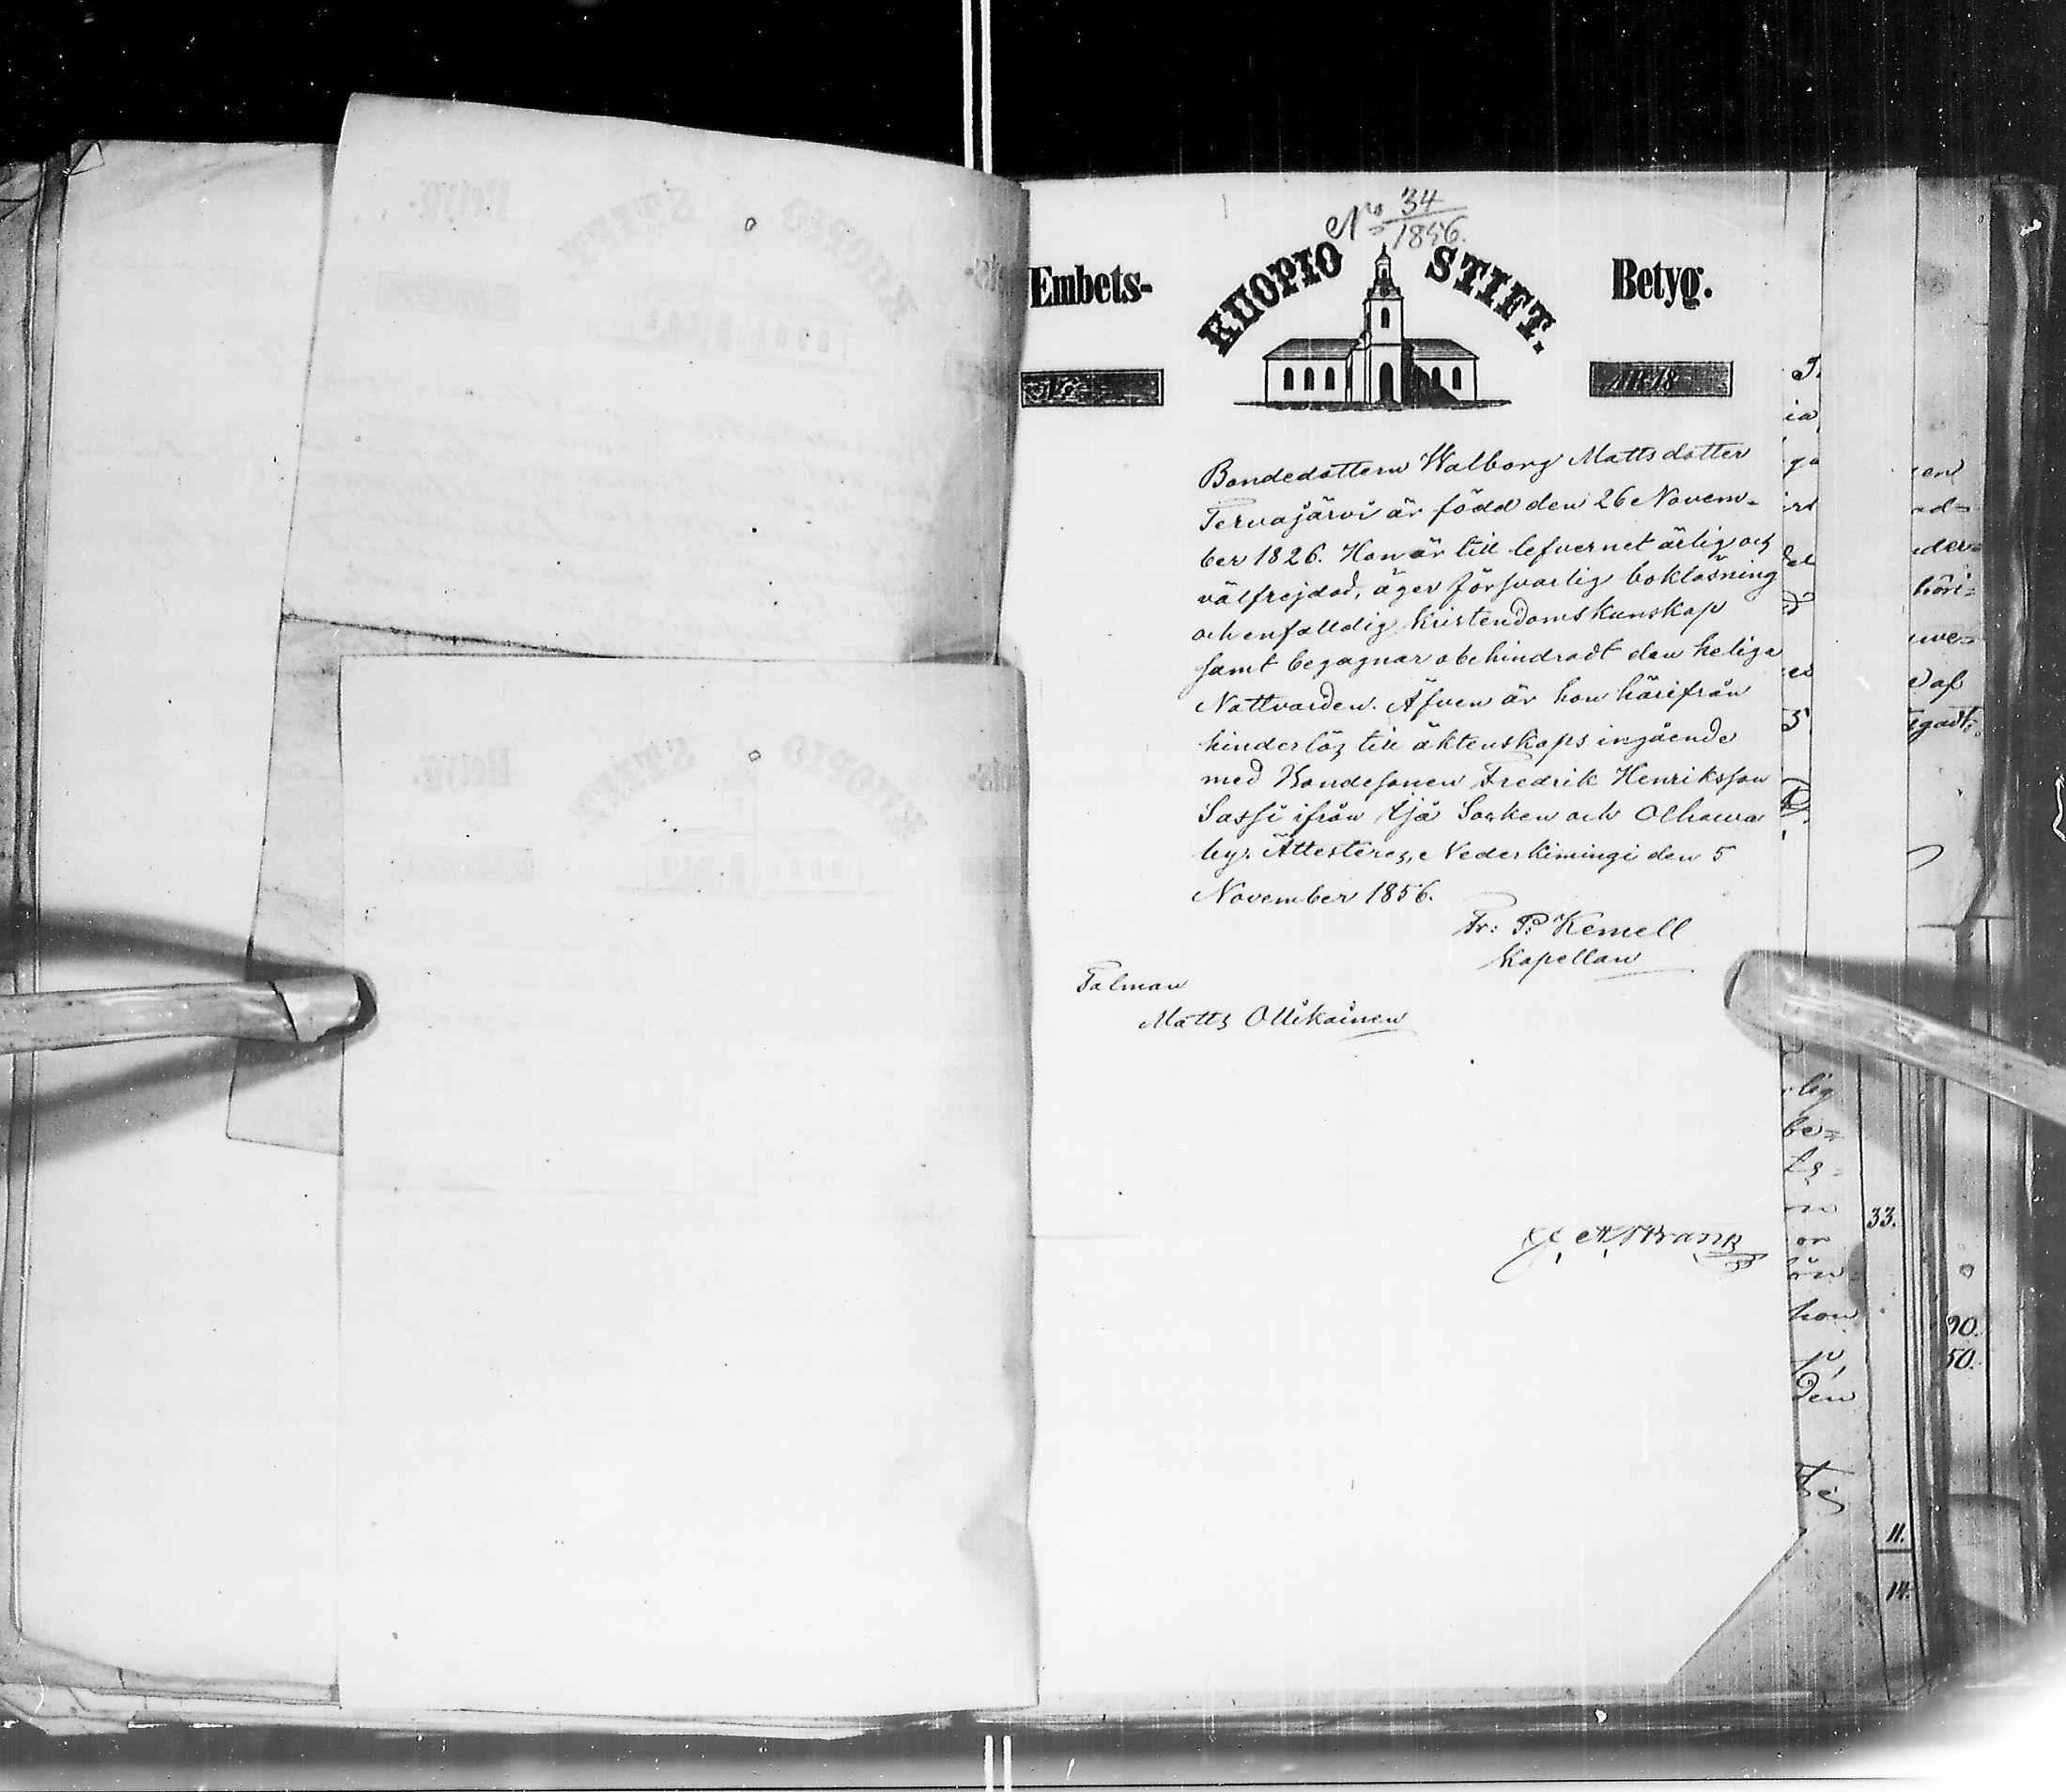 No 34
1856.
Embets-
KUOPIO STIFT.
Betyg.
No
ÅR 18
Bondedottern Walborg Mattsdotter
Tervajärvi är född den 26 Novem-
ber 1826. Hon är till lefvernet ärlig och
välfrejdad, äger försvarlig bokläsning
och enfalldig kristendomskunskap
samt begagnar obehindradt den heliga
Nattvarden. Äfven är hon härifrån
hinderlös till äktenskaps ingående
med Bondesonen Fredrik Henriksson
Sassi ifrån Ijå Socken och Olhawa
by. Attesteres, Nederkimingi den 5
November 1856.
Fr: P: Kemell
Kapellan
Talman
Matts Ollikainen
33.
90.
50.
11.
14.